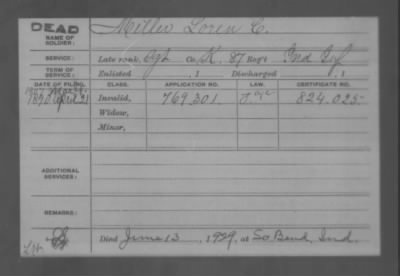 DEAD Miller Loren C.
NAME OF SOLDIER:
SERVICE: Late rank, Sgt Co. K, 87 Reg't Ind Inf
TERM OF SERVICE: Enlisted , 1 Discharged , 1
DATE OF FILING. CLASS. APPLICATION NO. LAW. CERTIFICATE NO.
1890 April 21 Invalid, 769.301 824.025
Widow,
Minor,
ADDITIONAL SERVICES:
REMARKS:
Died June 13, 1929, at So Bend, Ind.